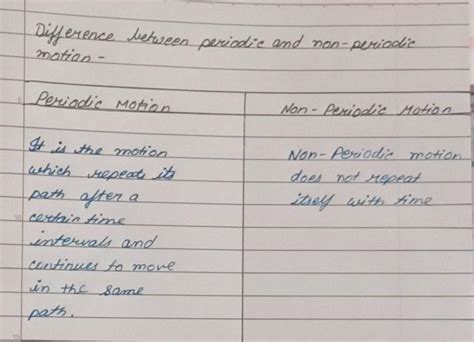 Difference between periodic and non-periodic
motion -
Periodic Motion
It is the motion
which repeats its
path after a
certain time
intervals and
continues to move
in the same
path.
Non-Periodic Motion
Non-Periodic motion
does not repeat
itself with time